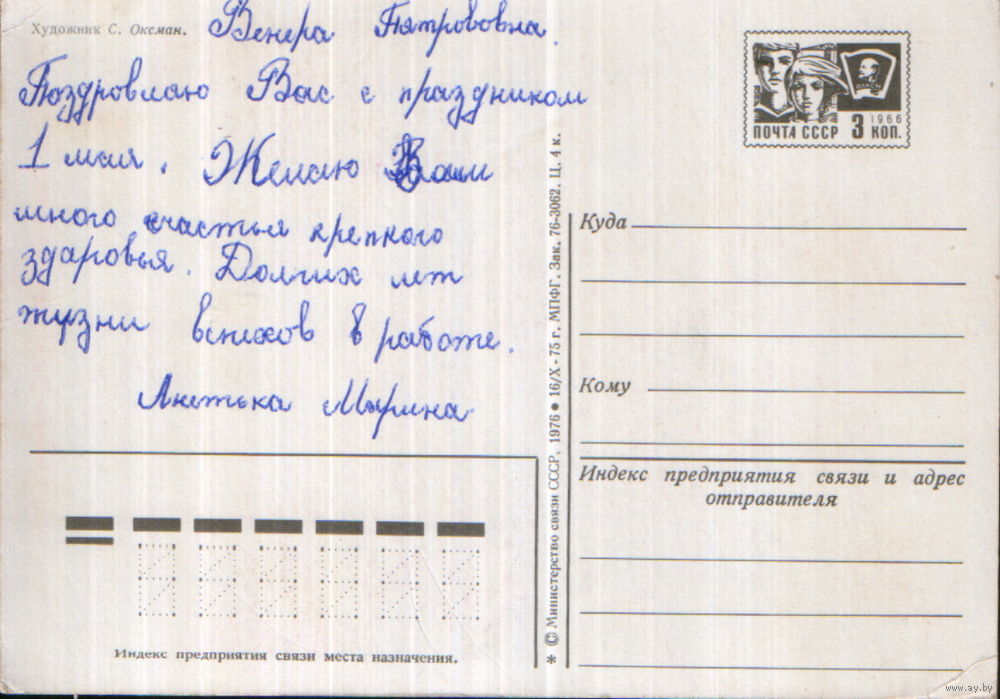 Художник С. Оксман.
Венера Пятрововна.
Поздровлаю Вас с праздником
1 мая. Желаю Вам
много счастья крепкого
здаровья. Долгих лет
жузни вспехов в работе.
Мырина
ПОЧТА СССР 3 КОП.
1966
ВЛКСМ
Куда
Кому
Индекс предприятия связи и адрес
отправителя
Индекс предприятия связи места назначения.
* © Министерство связи СССР, 1976 ● 16/X - 75 г. МПФГ. Зак. 76-3062. Ц. 4 к.
www.ay.by